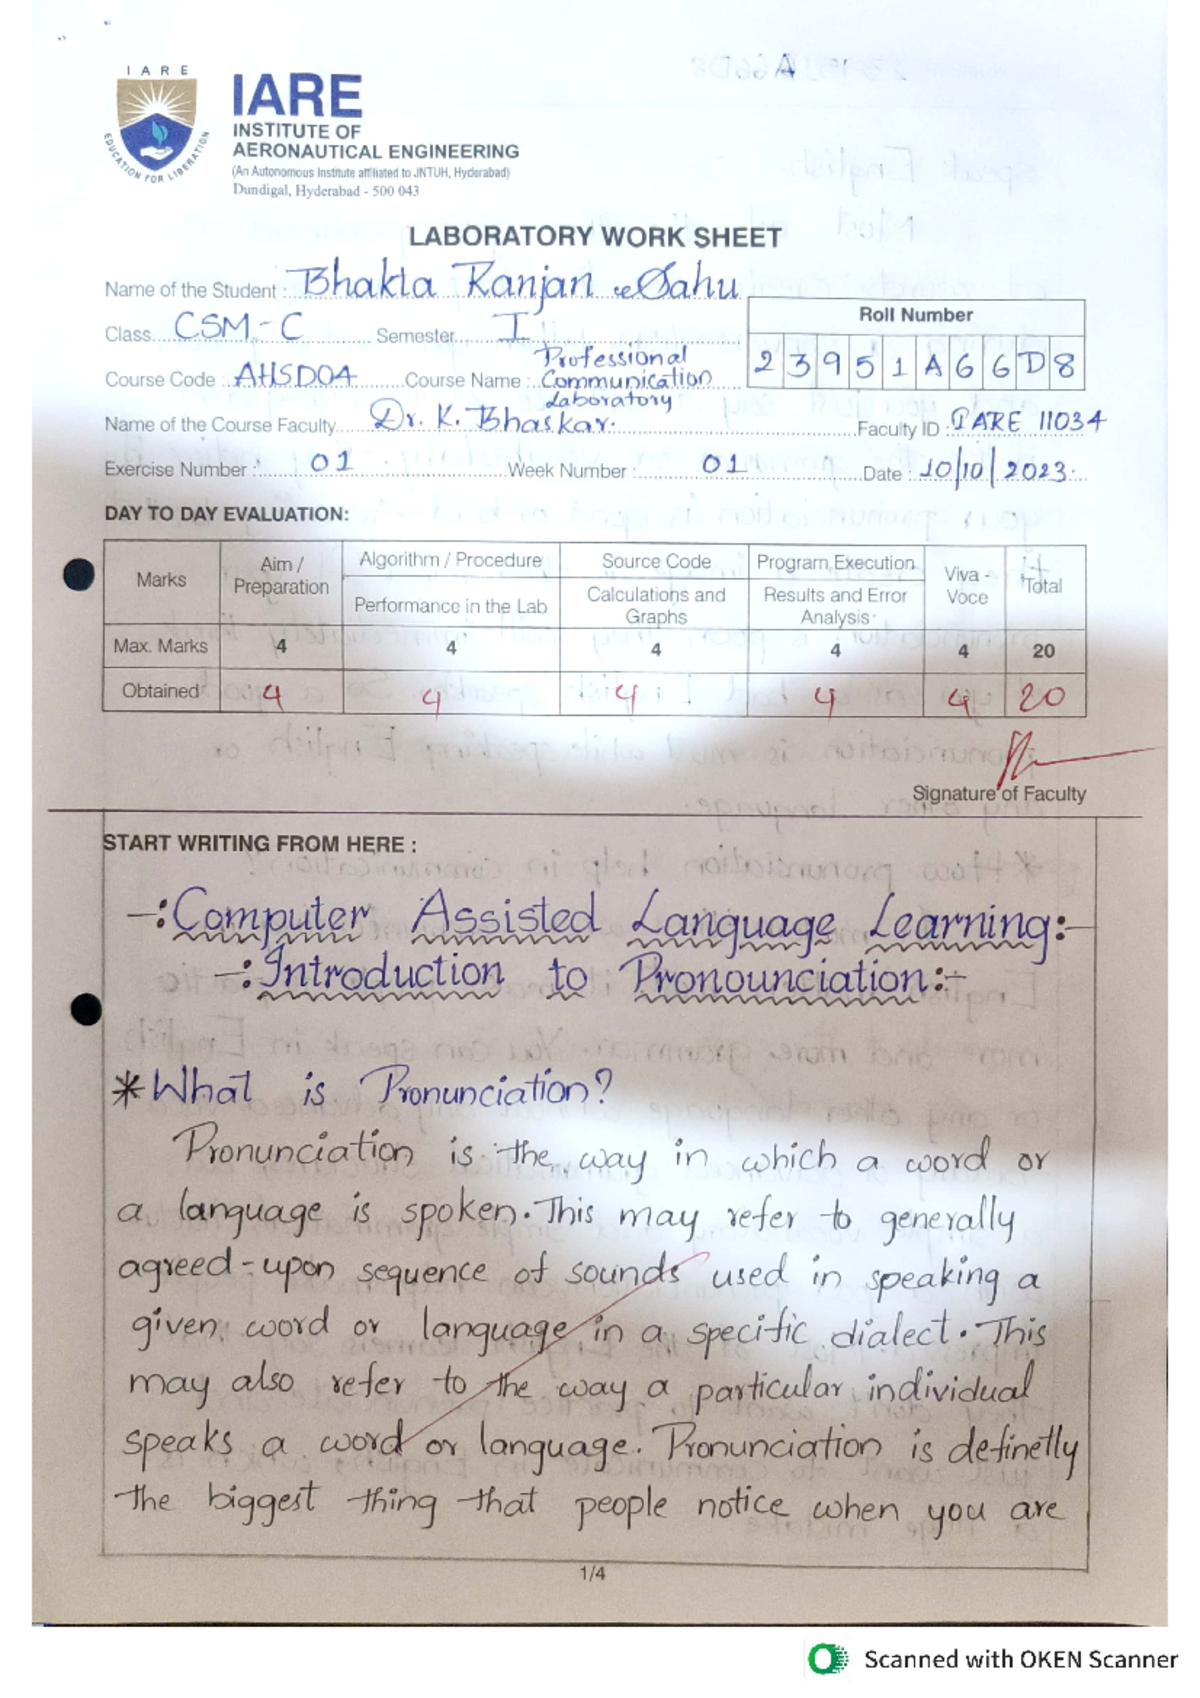 I A R E
EDUCATION FOR LIBERATION
IARE
INSTITUTE OF
AERONAUTICAL ENGINEERING
(An Autonomous Institute affiliated to JNTUH, Hyderabad)
Dundigal, Hyderabad - 500 043
LABORATORY WORK SHEET
Name of the Student : Bhakta Ranjan Sahu
Class CSM - C Semester I
Roll Number
2 3 9 5 1 A 6 6 D 8
Course Code : AHSD04 Course Name : Professional Communication Laboratory
Name of the Course Faculty Dr. K. Bhaskar. Faculty ID : IARE 11034
Exercise Number : 01 Week Number : 01 Date : 10/10/2023
DAY TO DAY EVALUATION:
Marks Aim / Preparation Algorithm / Procedure Source Code Program Execution Viva - Voce Total
Performance in the Lab Calculations and Graphs Results and Error Analysis
Max. Marks 4 4 4 4 4 20
Obtained 4 4 4 4 4 20
Signature of Faculty
START WRITING FROM HERE :
-:Computer Assisted Language Learning:-
-:Introduction to Pronounciation:-
* What is Pronunciation?
Pronunciation is the way in which a word or
a language is spoken. This may refer to generally
agreed-upon sequence of sounds used in speaking a
given word or language in a specific dialect. This
may also refer to the way a particular individual
speaks a word or language. Pronunciation is definetly
the biggest thing that people notice when you are
1/4
Scanned with OKEN Scanner